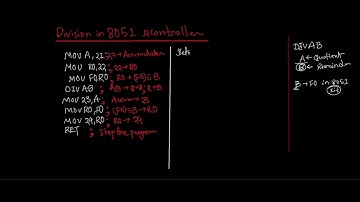 Division in 8051 μcontroller
MOV A, 21; 21→Accumulator
MOV R0, 22; 22→R0
MOV F0, R0; R0→(F0)=B
DIV AB; A/B→Q→A; R→B
MOV 23, A; Accum→23
MOV R0, F0; (F0)=B→R0
MOV 24, R0; R0→24
RET; Stop the program
Sets
DIV AB
A←Quotient
B←Remainder
B→F0 in 8051